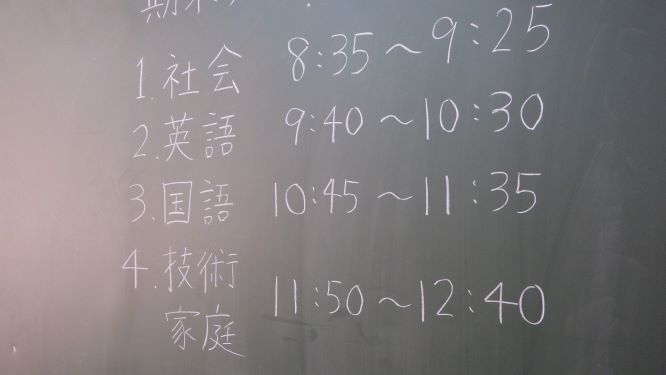 期末
1. 社会 8:35～9:25
2. 英語 9:40～10:30
3. 国語 10:45～11:35
4. 技術 11:50～12:40
家庭